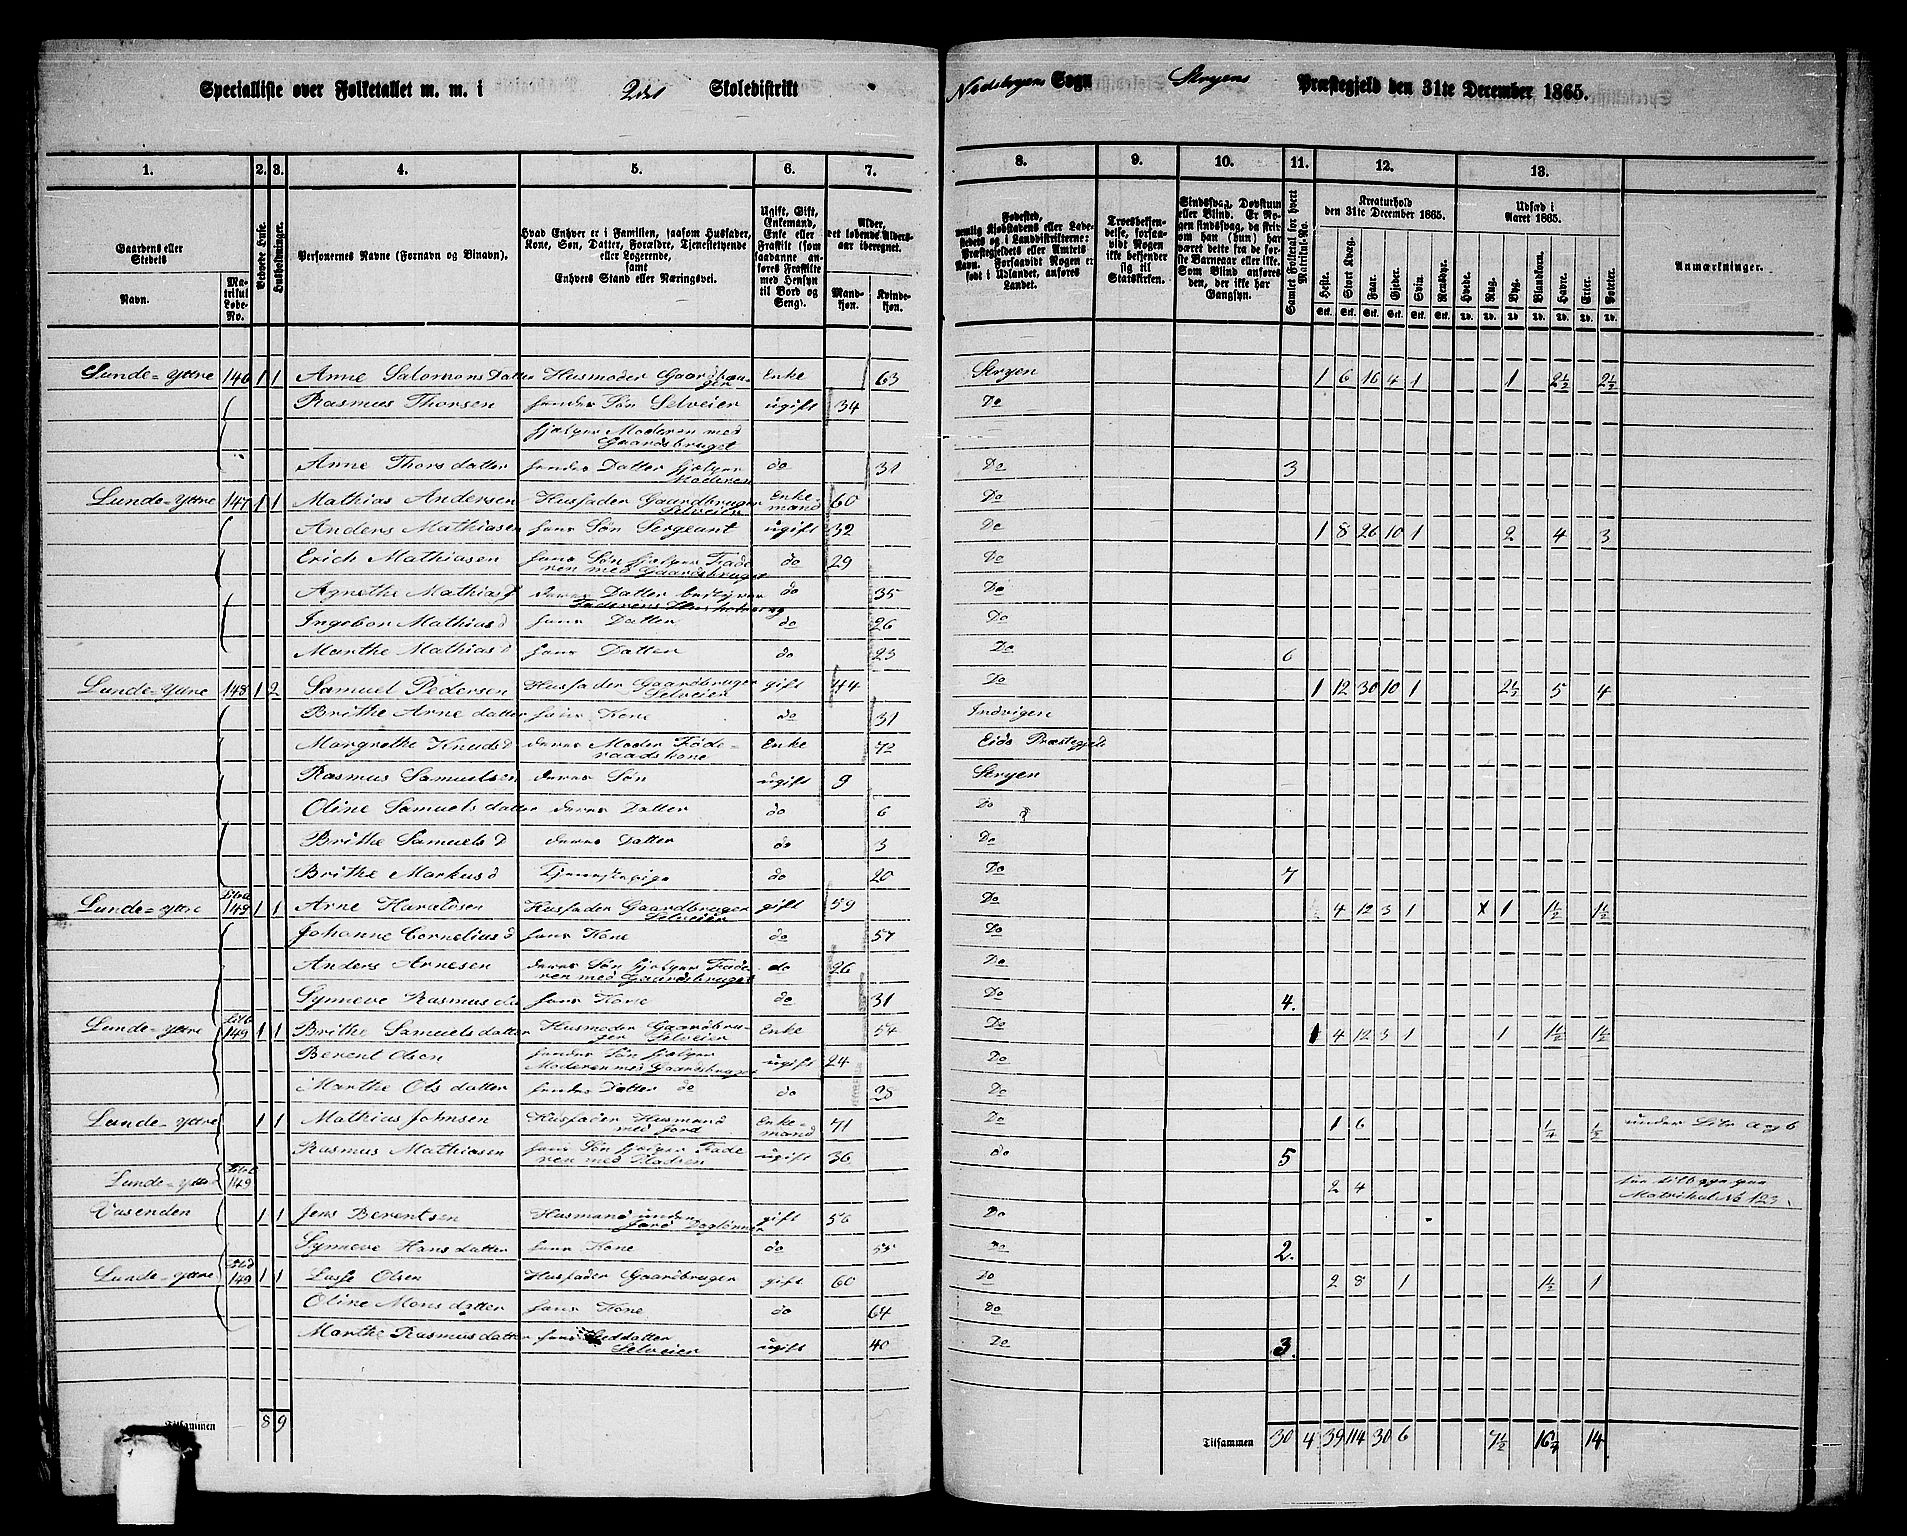 Specialliste over Folketallet m. m. i 2det Skoledistrikt
Nedstryns Sogn Stryens Præstegjeld den 31te December 1865.
1. 2. 3. 4. 5. 6. 7. 8. 9. 10. 11. 12. 13.
Gaardens eller Stedets
Navn.
Matrikul Løbe-No.
Beboede Huse.
Husholdninger.
Personernes Navne (Fornavn og Binavn).
Hvad Enhver er i Familien, saasom Husfader, Kone, Søn, Datter, Forældre, Tjenestetyende eller Logerende,
samt
Enhvers Stand eller Næringsvei.
Ugift, Gift, Enkemand, Enke eller Fraskilt (som saadanne anføres Fraskilte med Hensyn til Bord og Seng).
Alder, det løbende Alders-aar iberegnet.
Mandkjøn.
Kvindekjøn.
Trosbekjendelse, forsaavidt Nogen ikke bekjender sig til Statskirken.
Samlet Folketal for hvert Matrikul-No.
Kreaturhold
den 31te December 1865.
Udsæd i
Aaret 1865.
Heste. Stort Kvæg. Faar. Gjeder. Svin. Rensdyr. Hvede. Rug. Byg. Blandkorn. Havre. Erter. Poteter.
Anmærkninger.
Lunde-Yttre 146 1 1 Anne Salomons Datter Husmoder Gaardbruger Enke 63 Stryen 1 6 16 4 1 1 2½ 2½
Rasmus Thorsen hendes Søn Selveier ugift 34 Do
hjælper Moderen med
Gaardsbruget
Anne Thorsdatter hendes Datter hjælper Moderen do 31 Do 3
Lunde-Yttre 147 1 1 Mathias Andersen Husfader Gaardbruger Selveier Enkemand 60 Do
Anders Mathiasen hans Søn Sergeant ugift 32 Do 1 8 26 10 1 2 4 3
Erich Mathiasen hans Søn hjælper Faderen med Gaardsbruget do 29 Do
Agnethe Mathias D deres Datter bestyrer Faderens Husholdning do 35 Do
Ingebor Mathias D hans Datter do 26 Do
Marthe Mathias D hans Datter do 23 Do 6
Lunde-Yttre 148 1 2 Samuel Pedersen Husfader Gaardbruger Selveier gift 44 Do 1 12 30 10 1 2½ 5 4
Brithe Arnedatter hans Kone do 31 Indvigen
Margrethe Knuds D deres Moder Føderaadskone Enke 72 Eids Præstegjeld
Rasmus Samuelsen deres Søn ugift 9 Stryen
Oline Samuelsdatter deres Datter do 6 Do
Brithe Samuels D deres Datter do 3 Do
Brithe Markus D Tjenestepige do 20 Do 7
Lunde-Yttre Litra a 149 1 1 Arne Haraldsen Husfader Gaardbruger Selveier gift 59 Do 4 12 3 1 1 1½ 1½
Johanne Cornelius D hans Kone do 57 Do
Anders Arnesen deres Søn hjælper Faderen med Gaardsbruget do 26 Do
Synneve Rasmusda hans Kone do 31 Do 4.
Lunde-Yttre Lit b 149 1 1 Brithe Samuelsdatter Husmoder Gaardbruger Selveier Enke 54 Do 1 4 12 3 1 1 1½ 1½
Berent Olsen hendes Søn hjælper Moderen med Gaardsbruget ugift 24 Do
Marthe Olsdatter hendes Datter do do 28 Do
Lunde-Yttre 1 1 Mathias Johnsen Husfader Husmand med Jord Enkemand 71 Do 1 6 ¼ ½ under Litr a og b
Rasmus Mathiasen hans Søn hjælper Faderen med Pladsen ugift 36 do 5
Lunde-Yttre Lit c 149 2 4 Matrikul No 123.
Vasenden 1 1 Jens Berentsen Husmand uden Jord Daglønner gift 56 Do
Synneve Hansdatter hans Kone do 55 Do 2.
Lunde-Yttre Lit d 149 1 1 Lasse Olsen Husfader Gaardbruger gift 60 Do 2 8 1 1½ 1
Oline Monsdatter hans Kone do 64 Do
Marthe Rasmusdatter hans Steddatter Selveier ugift 40 Do 3.
Tilsammen 8 9
Tilsammen 30 4 39 114 30 6 7½ 16¼ 14